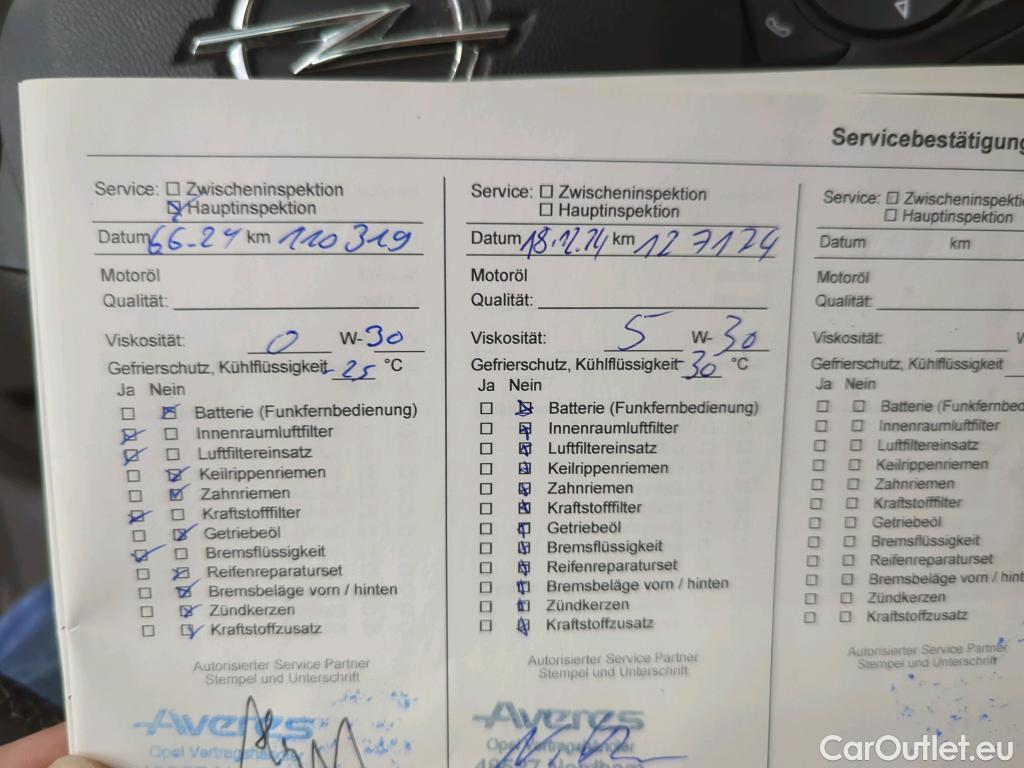 Servicebestätigung
Service: Zwischeninspektion
Hauptinspektion
Datum 6.6.24 km 110319
Motoröl
Qualität:
Viskosität: 0 W-30
Gefrierschutz, Kühlflüssigkeit -25 °C
Ja Nein
Batterie (Funkfernbedienung)
Innenraumluftfilter
Luftfiltereinsatz
Keilrippenriemen
Zahnriemen
Kraftstofffilter
Getriebeöl
Bremsflüssigkeit
Reifenreparaturset
Bremsbeläge vorn / hinten
Zündkerzen
Kraftstoffzusatz
Autorisierter Service Partner
Stempel und Unterschrift
Averes
Opel Vertragshändler
Service: Zwischeninspektion
Hauptinspektion
Datum 18.12.24 km 127174
Motoröl
Qualität:
Viskosität: 5 W-30
Gefrierschutz, Kühlflüssigkeit -30 °C
Ja Nein
Batterie (Funkfernbedienung)
Innenraumluftfilter
Luftfiltereinsatz
Keilrippenriemen
Zahnriemen
Kraftstofffilter
Getriebeöl
Bremsflüssigkeit
Reifenreparaturset
Bremsbeläge vorn / hinten
Zündkerzen
Kraftstoffzusatz
Autorisierter Service Partner
Stempel und Unterschrift
Averes
Opel Vertragshändler
Service: Zwischeninspekti
Hauptinspektion
Datum km
Motoröl
Qualität:
Viskosität:
Gefrierschutz, Kühlflüssigkeit
Ja Nein
Batterie (Funkfernbed
Innenraumluftfilter
Luftfiltereinsatz
Keilrippenriemen
Zahnriemen
Kraftstofffilter
Getriebeöl
Bremsflüssigkeit
Reifenreparaturset
Bremsbeläge vorn / hinte
Zündkerzen
Kraftstoffzusatz
Autorisierter Service Partner
Stempel und Unterschrift
CarOutlet.eu